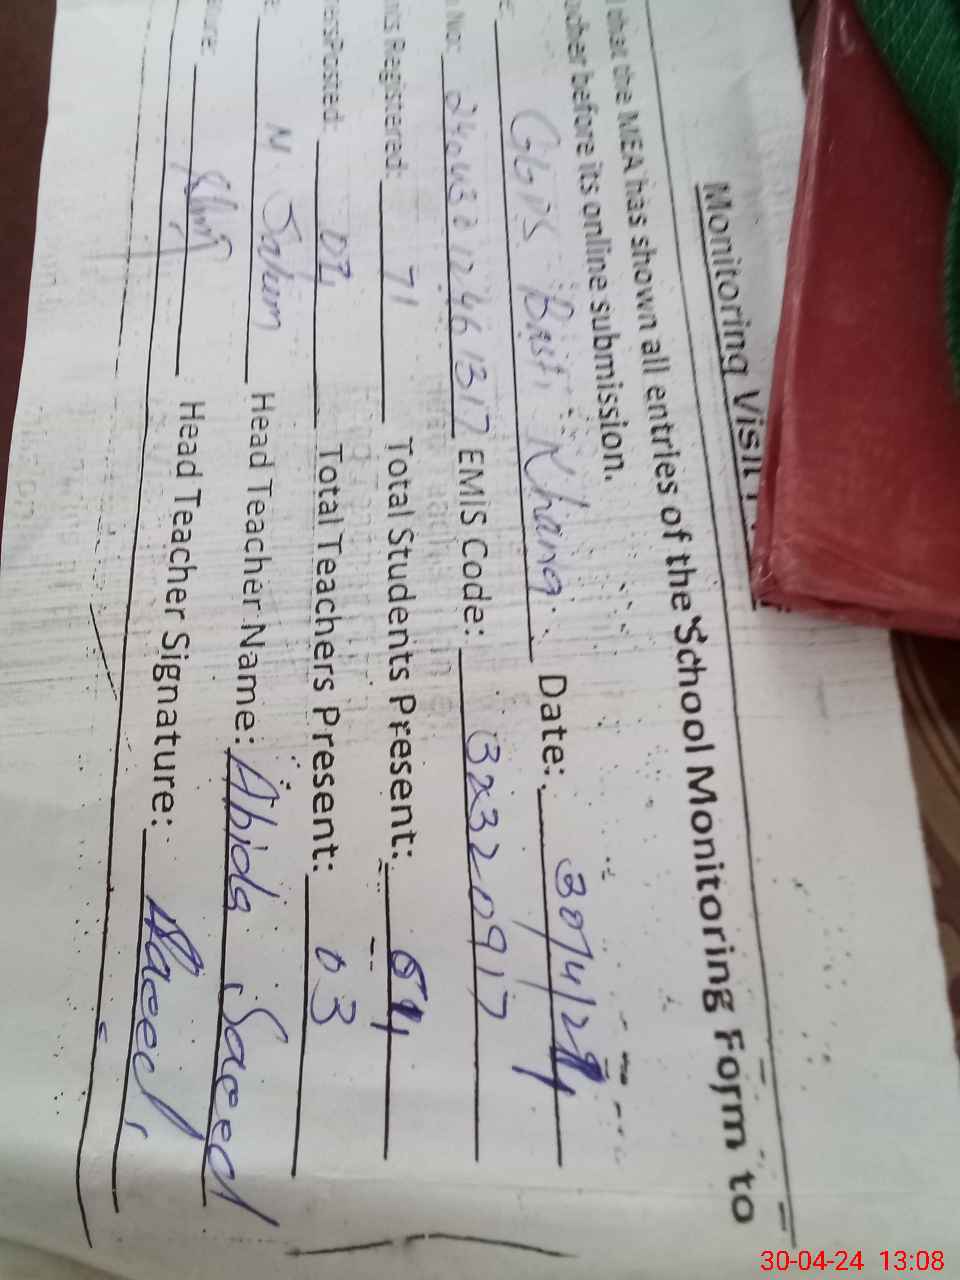 Monitoring Visit
that the MEA has shown all entries of the School Monitoring Form to
before its online submission.
GGPS Basti Khang Date: 30/4/24
No: EMIS Code: 32320917
Registered: 71 Total Students Present: 64
Posted: 04 Total Teachers Present: 03
N. Saleem Head Teacher Name: Abida Saeed
Head Teacher Signature: Saeed
30-04-24 13:08